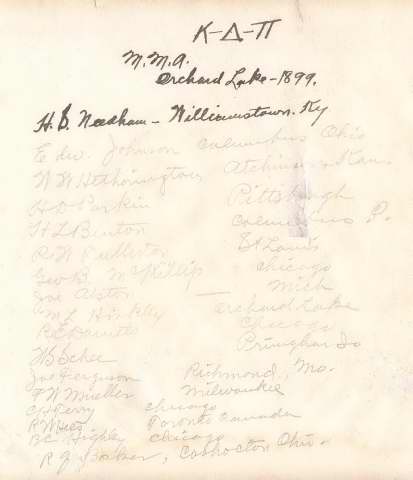 K-Δ-Π
M.M.A.
Orchard Lake-1899.
H. S. Needham - Williamstown. Ky
Edw. Johnson Columbus Ohio
W W Hetherington Atchinson, Kan
H D Parkin Pittsburgh
H L Benton Columbus O.
R W Fullerton St Louis
Geo B. McKillip Chicago
Joe Alston Mich
M L Hinkley — Orchard Lake
R E Chicago
W S Schee Primghar Ia
Joe Ferguson Richmond, Mo.
F W Mueller Milwaukee
C H Perry Chicago
R W Toronto Canada
B C Higley Chicago
R J Baker, Coshocton Ohio.